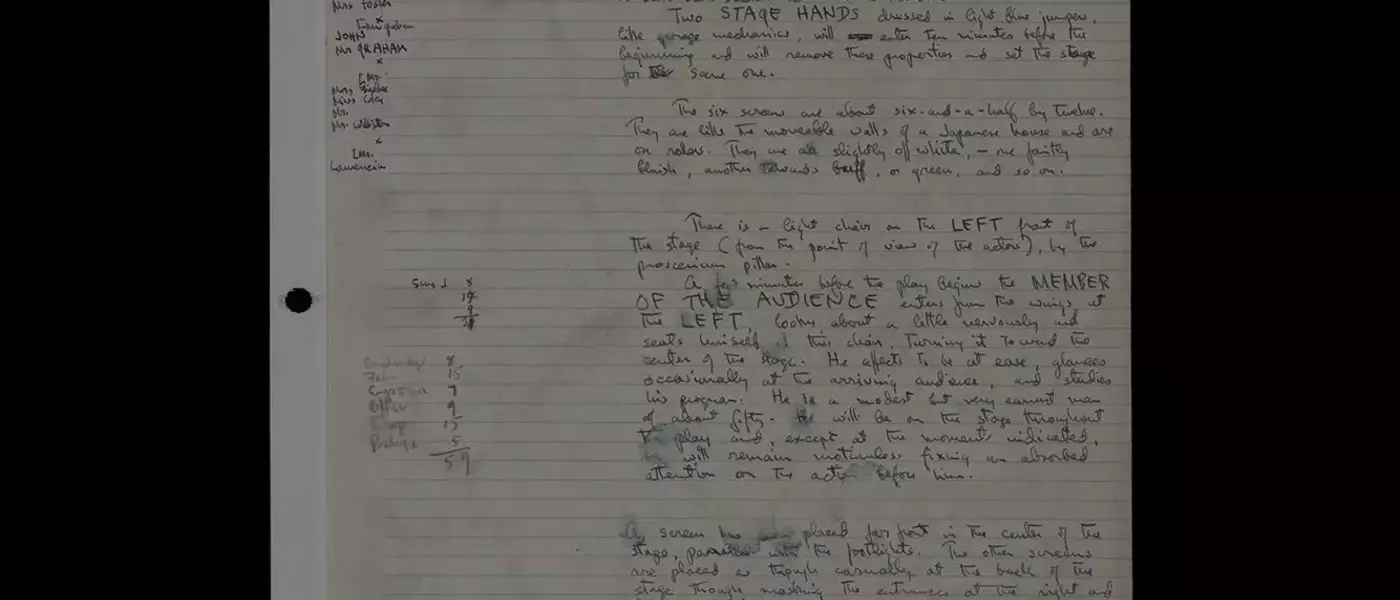 Mrs Foster
JOHN
Mr GRAHAM
Mrs
Miss
Mr.
Mr.
Laurencia
Two STAGE HANDS dressed in light blue jumpers,
like garage mechanics, will enter ten minutes before the
beginning and will remove these properties and set the stage
for Scene one.
The six screens are about six-and-a-half by twelve.
They are like the moveable walls of a Japanese house and are
on rollers. They are all slightly off white, – one faintly
bluish, another towards buff, or green, and so on.
There is a light chair on the LEFT front of
the stage (from the point of view of the actors), by the
proscenium pillar.
A few minutes before the play begins the MEMBER
OF THE AUDIENCE enters from the wings at
the LEFT, looks about a little nervously and
seats himself this chair, turning it toward the
center of the stage. He affects to be at ease, glances
occasionally at the arriving audience, and studies
his program. He is a modest but very earnest man
of about fifty. He will be on the stage throughout
the play and, except at the moments indicated,
he will remain motionless fixing an absorbed
attention on the action before him.
A screen has been placed far front in the center of the
stage, parallel with the footlights. The other screens
are placed as though casually at the back of the
stage though masking the entrances at the right and
8
9
8
15
7
9
15
5
59